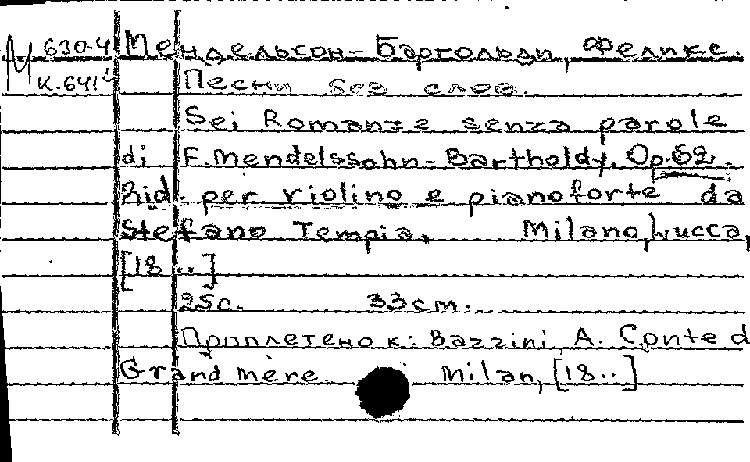 М 630-4 Мендельсон-Бартольди, Феликс.
к.641 Песни без слов.
Sei Romanze senza parole
di F. Mendelssohn-Bartholdy. Op.62.
Rid. per violino e pianoforte da
Stefano Tempia. Milano, Lucca,
[18..]
25с. 33см.
Приплетено к: Bazzini, A. Conte d
Grand mère Milan, [18..]